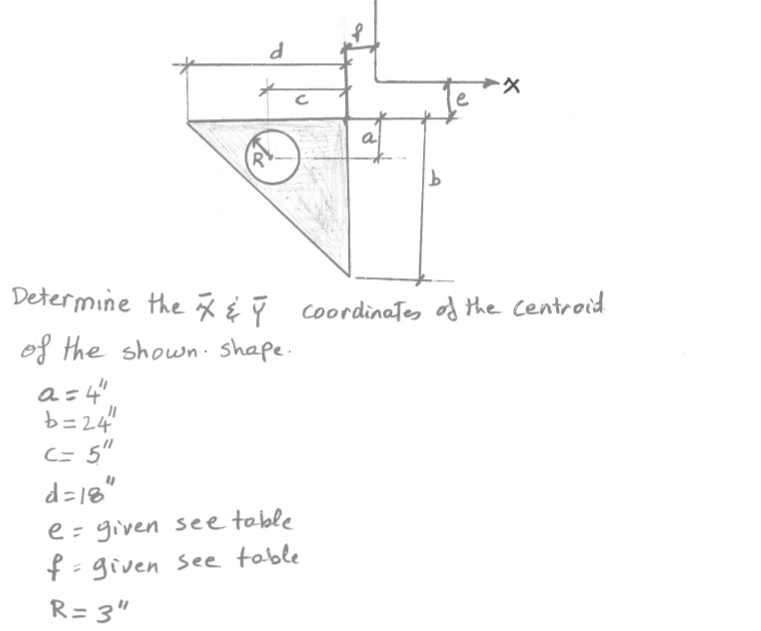 f
d
x
c
e
a
R
b
Determine the x̄ & ȳ coordinates of the centroid
of the shown. shape.
a = 4"
b = 24"
c = 5"
d = 18"
e = given see table
f = given see table
R = 3"